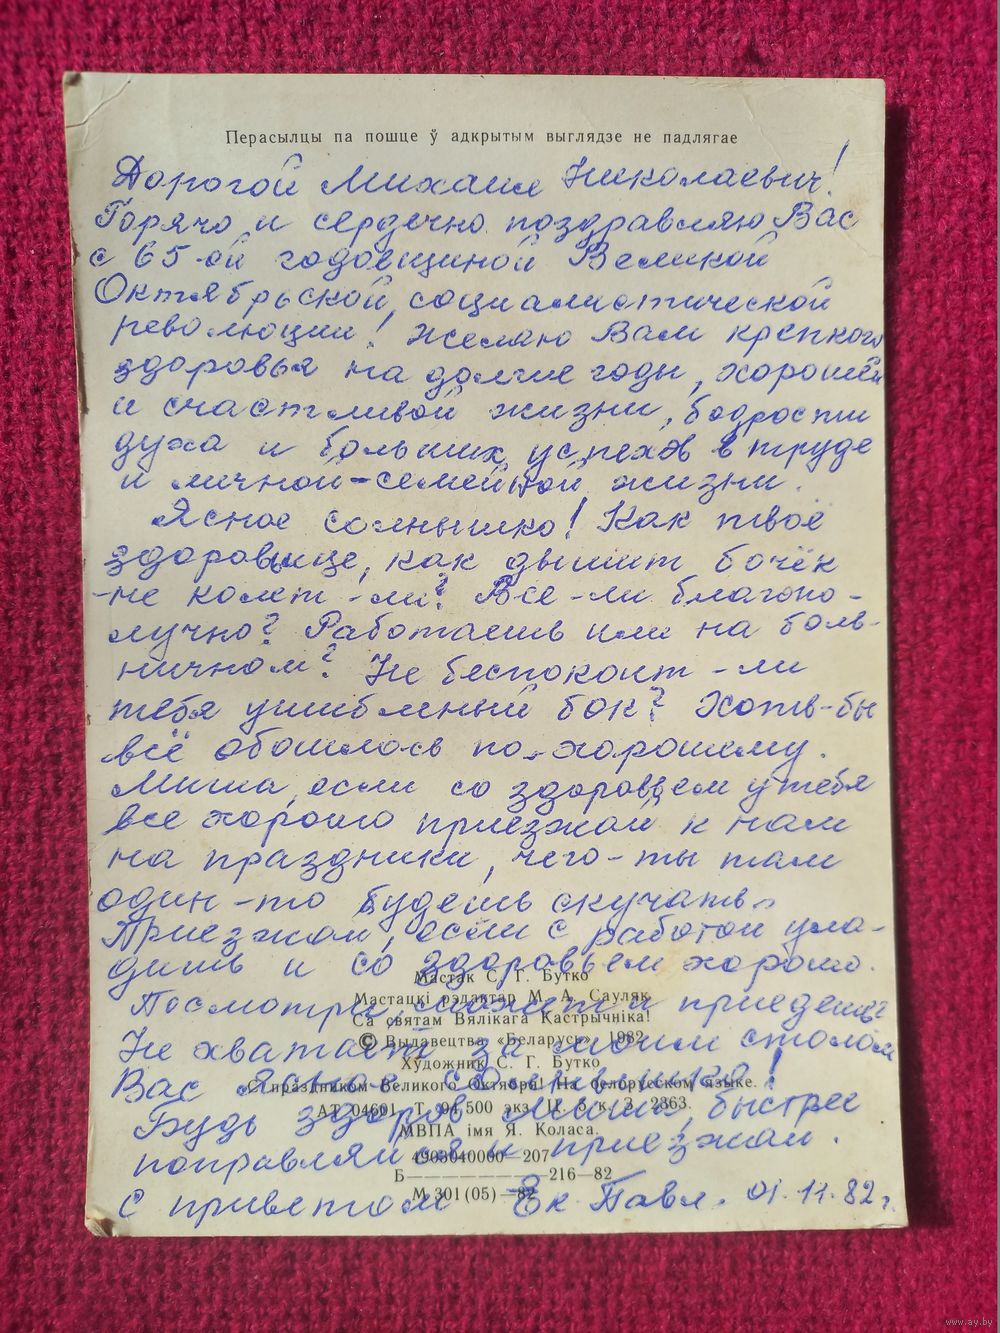 Перасылцы па пошце ў адкрытым выглядзе не падлягае
Дорогой Михаил Николаевич!
Горячо и сердечно поздравляю Вас
с 65-ой годовщиной Великой
Октябрьской социалистической
революции! Желаю Вам крепкого
здоровья на долгие годы, хорошей
и счастливой жизни, бодрости
духа и больших успехов в труде
и личной-семейной жизни.
Ясное солнышко! Как твоё
здоровьице, как дышит, бочёк
-не колет-ли? Все-ли благопо-
лучно? Работаешь или на боль-
ничном? Не беспокоит-ли
тебя ушибленный бок? Хоть-бы
всё обошлось по-хорошему.
Миша, если со здоровьем у тебя
все хорошо приезжай к нам
на праздники, чего-ты там
один-то будешь скучать.
Приезжай, если с работой ула-
дишь и со здоровьем хорошо.
Мастак С. Г. Бутко
Мастацкі рэдактар М. А. Сауляк
Посмотри, может и приедешь?
Са святам Вялікага Кастрычніка!
© Выдавецтва «Беларусь», 1982
Не хватает за моим столом
Художник С. Г. Бутко
Вас Ясное солнышко!
С праздником Великого Октября! На белорусском языке.
АТ 04601. Т. 94 500 экз. Ц. 5 к. З. 2363.
Будь здоров Миша, быстрее
МВПА імя Я. Коласа.
поправляйся и приезжай.
4903040000—207
Б——————216—82
М 301(05)—82
С приветом Ек. Павл. 01.11.82г.
www.ay.by